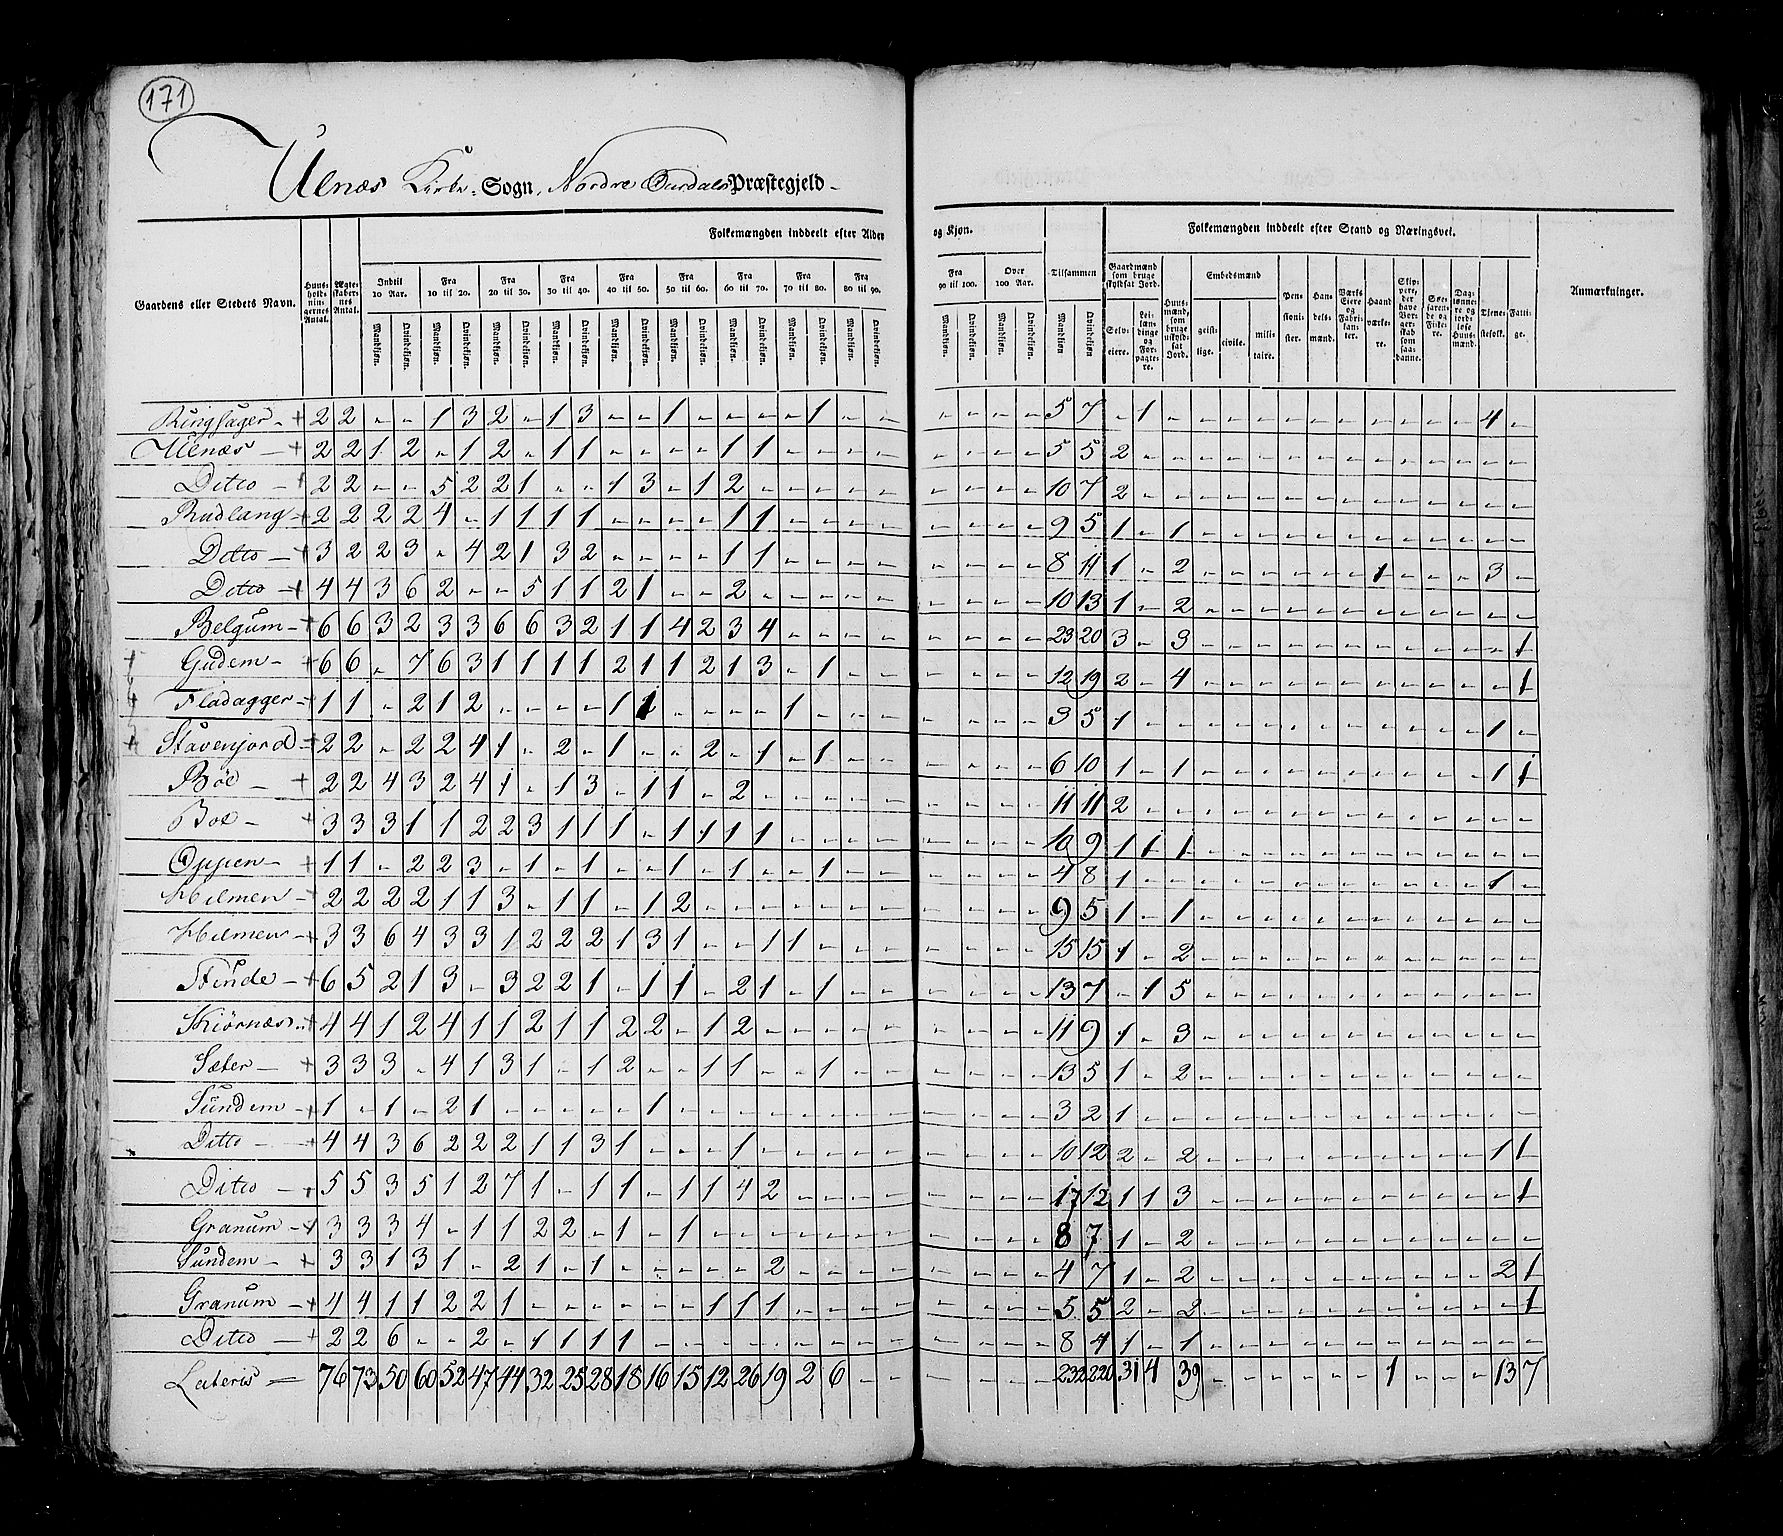 171
Ulnæs Kirke-Sogn, Nordre Ourdals Præstegjeld-
Gaardens eller Stedets Navn. Huusholdningernes Antal. Ægteskabernes Antal. Folkemængden inddeelt efter Alder og Kjøn. Tilsammen Folkemængden inddeelt efter Stand og Næringsvei. Anmærkninger.
Indtil 10 Aar. Fra 10 til 20. Fra 20 til 30. Fra 30 til 40. Fra 40 til 50. Fra 50 til 60. Fra 60 til 70. Fra 70 til 80. Fra 80 til 90. Fra 90 til 100. Over 100 Aar.
Gaardmænd som bruge skyldsat Jord. Huusmænd, som bruge uskyldsat Jord. Embedsmænd Pensionister. Handelsmænd. Værks Eiere og Fabrikanter. Haandværkere. Skippere, der have Borgerskab som saadanne. Søefarende og Fiskere. Dagslønnere og jordløse Huusmænd. Tjenestefolk. Fattige.
Mandkjøn. Qvindekjøn. Selveiere. Leilændinge og Forpagtere. geistlige. civile. militaire.
Ringsager - + 2 2 - - 1 3 2 - 1 3 - - 1 - - - - 1 - - - - - - 5 7 - 1 - - - - - - - - - - - 4 -
Ulnæs - + 2 2 1 2 - 1 2 - 1 1 - - - - 1 1 - - - - - - - - 5 5 2 - - - - - - - - - - - - - -
Ditto - + 2 2 - - 5 2 2 1 - - 1 3 - 1 2 - - - - - - - - - 10 7 2 - - - - - - - - - - - - - -
Rudlang - + 2 2 2 2 4 - 1 1 1 1 - - - - 1 1 - - - - - - - - 9 5 1 - 1 - - - - - - - - - - - -
Ditto - + 3 2 2 3 - 4 2 1 3 2 - - - - 1 1 - - - - - - - - 8 11 1 - 2 - - - - - - 1 - - - 3 -
Ditto - + 4 4 3 6 2 - - 5 1 1 2 1 - - 2 - - - - - - - - - 10 13 1 - 2 - - - - - - - - - - - -
Belgum - + 6 6 3 2 3 3 6 6 3 2 1 1 4 2 3 4 - - - - - - - - 23 20 3 - 3 - - - - - - - - - - - 1
Gudem - + 6 6 - 7 6 3 1 1 1 1 2 1 1 2 1 3 - 1 - - - - - - 12 19 2 - 4 - - - - - - - - - - - 1
Fladagger - + 1 1 - 2 1 2 - - - - 1 1 - - - - 1 - - - - - - - 3 5 1 - - - - - - - - - - - - 1 -
Stavenjord - + 2 2 - 2 2 4 1 - 2 - 1 - - 2 - 1 - 1 - - - - - - 6 10 1 - 1 - - - - - - - - - - 1 1
Böe - + 2 2 4 3 2 4 1 - 1 3 - 1 1 - 2 - - - - - - - - - 11 11 2 - - - - - - - - - - - - - -
Boe - + 3 3 3 1 1 2 2 3 1 1 1 - 1 1 1 1 - - - - - - - - 10 9 1 1 1 - - - - - - - - - - - -
Oppen - + 1 1 - 2 2 3 - 1 - 1 - - 1 - 1 - - 1 - - - - - - 4 8 1 - - - - - - - - - - - - 1 -
Hilmen - + 2 2 2 2 1 1 3 - 1 1 - 1 2 - - - - - - - - - - - 9 5 1 - 1 - - - - - - - - - - - -
Hilmen - + 3 3 6 4 3 3 1 2 2 2 1 3 1 - - 1 1 - - - - - - - 15 15 1 - 2 - - - - - - - - - - - -
Stünde - + 6 5 2 1 3 - 3 2 2 1 - 1 1 - 2 1 - 1 - - - - - - 13 7 - 1 5 - - - - - - - - - - - -
Skiörnæs - + 4 4 1 2 4 1 1 2 1 1 2 2 - 1 2 - - - - - - - - - 11 9 1 - 3 - - - - - - - - - - - -
Sæter - + 3 3 3 - 4 1 3 1 - 1 2 - - 1 1 - - 1 - - - - - - 13 5 1 - 2 - - - - - - - - - - - -
Sündem - + 1 - 1 - 2 1 - - - - - 1 - - - - - - - - - - - - 3 2 1 - - - - - - - - - - - - - -
Ditto - + 4 4 3 6 2 2 2 1 1 3 1 - - - 1 - - - - - - - - - 10 12 2 - 2 - - - - - - - - - - 1 1
Ditto - + 5 5 3 5 1 2 7 1 - 1 1 - 1 1 4 2 - - - - - - - - 17 12 1 1 3 - - - - - - - - - - - 1
Granum - + 3 3 3 4 - 1 1 2 2 - 1 - 1 - - - - - - - - - - - 8 7 1 - 2 - - - - - - - - - - - -
Sündem - + 3 3 1 3 1 - 2 1 - 1 - - - - - 2 - - - - - - - - 4 7 1 - 2 - - - - - - - - - - 2 1
Granum - + 4 4 1 1 2 2 1 - - - - - - 1 1 1 - - - - - - - - 5 5 2 - 2 - - - - - - - - - - - 1
Ditto - + 2 2 6 - - 2 - 1 1 1 1 - - - - - - - - - - - - - 8 4 1 - 1 - - - - - - - - - - - -
Lateris - 76 73 50 60 52 47 44 32 25 28 18 16 15 12 26 19 2 6 - - - - - - 232 220 31 4 39 - - - - - - 1 - - - 13 7